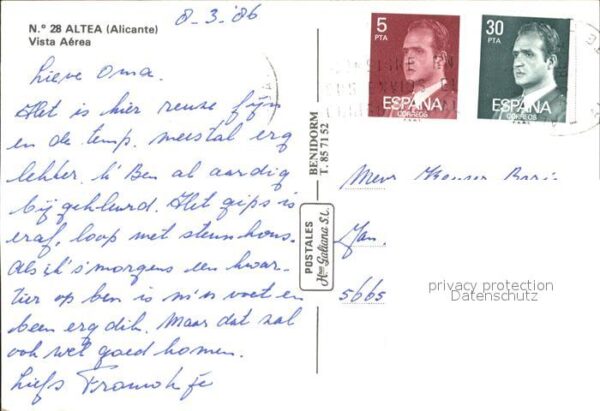 8-3-'86
N.° 28 ALTEA (Alicante)
Vista Aérea
Lieve Oma.
Het is hier reuze fijn
en de temp. meestal erg
lekker. 'k Ben al aardig
bijgekleurd. Het gips is
eraf, loop met steunkous.
Als ik 's morgens een kwar-
tier op ben is m'n voet en
been erg dik. Maar dat zal
ook wel goed komen.
Liefs
BENIDORM
T. 85 71 52
POSTALES
Hnos Galiana S.L.
5 PTA
ESPAÑA
CORREOS
30 PTA
ESPAÑA
CORREOS
Mevr
5665
privacy protection
Datenschutz